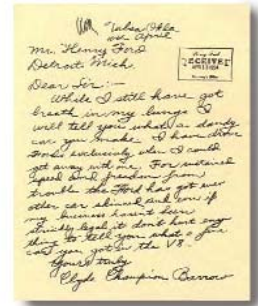 Tulsa Okla
10th April
Mr. Henry Ford
Detroit Mich.
Dear Sir:—
While I still have got
breath in my lungs I
will tell you what a dandy
car you make. I have drove
Fords exclusivly when I could
get away with one. For sustained
speed and freedom from
trouble the Ford has got ever
other car skinned and even if
my business hasent been
strickly legal it don't hurt eny
thing to tell you what a fine
car you got in the V8.
Yours truly
Clyde Champion Barrow
RECEIVED